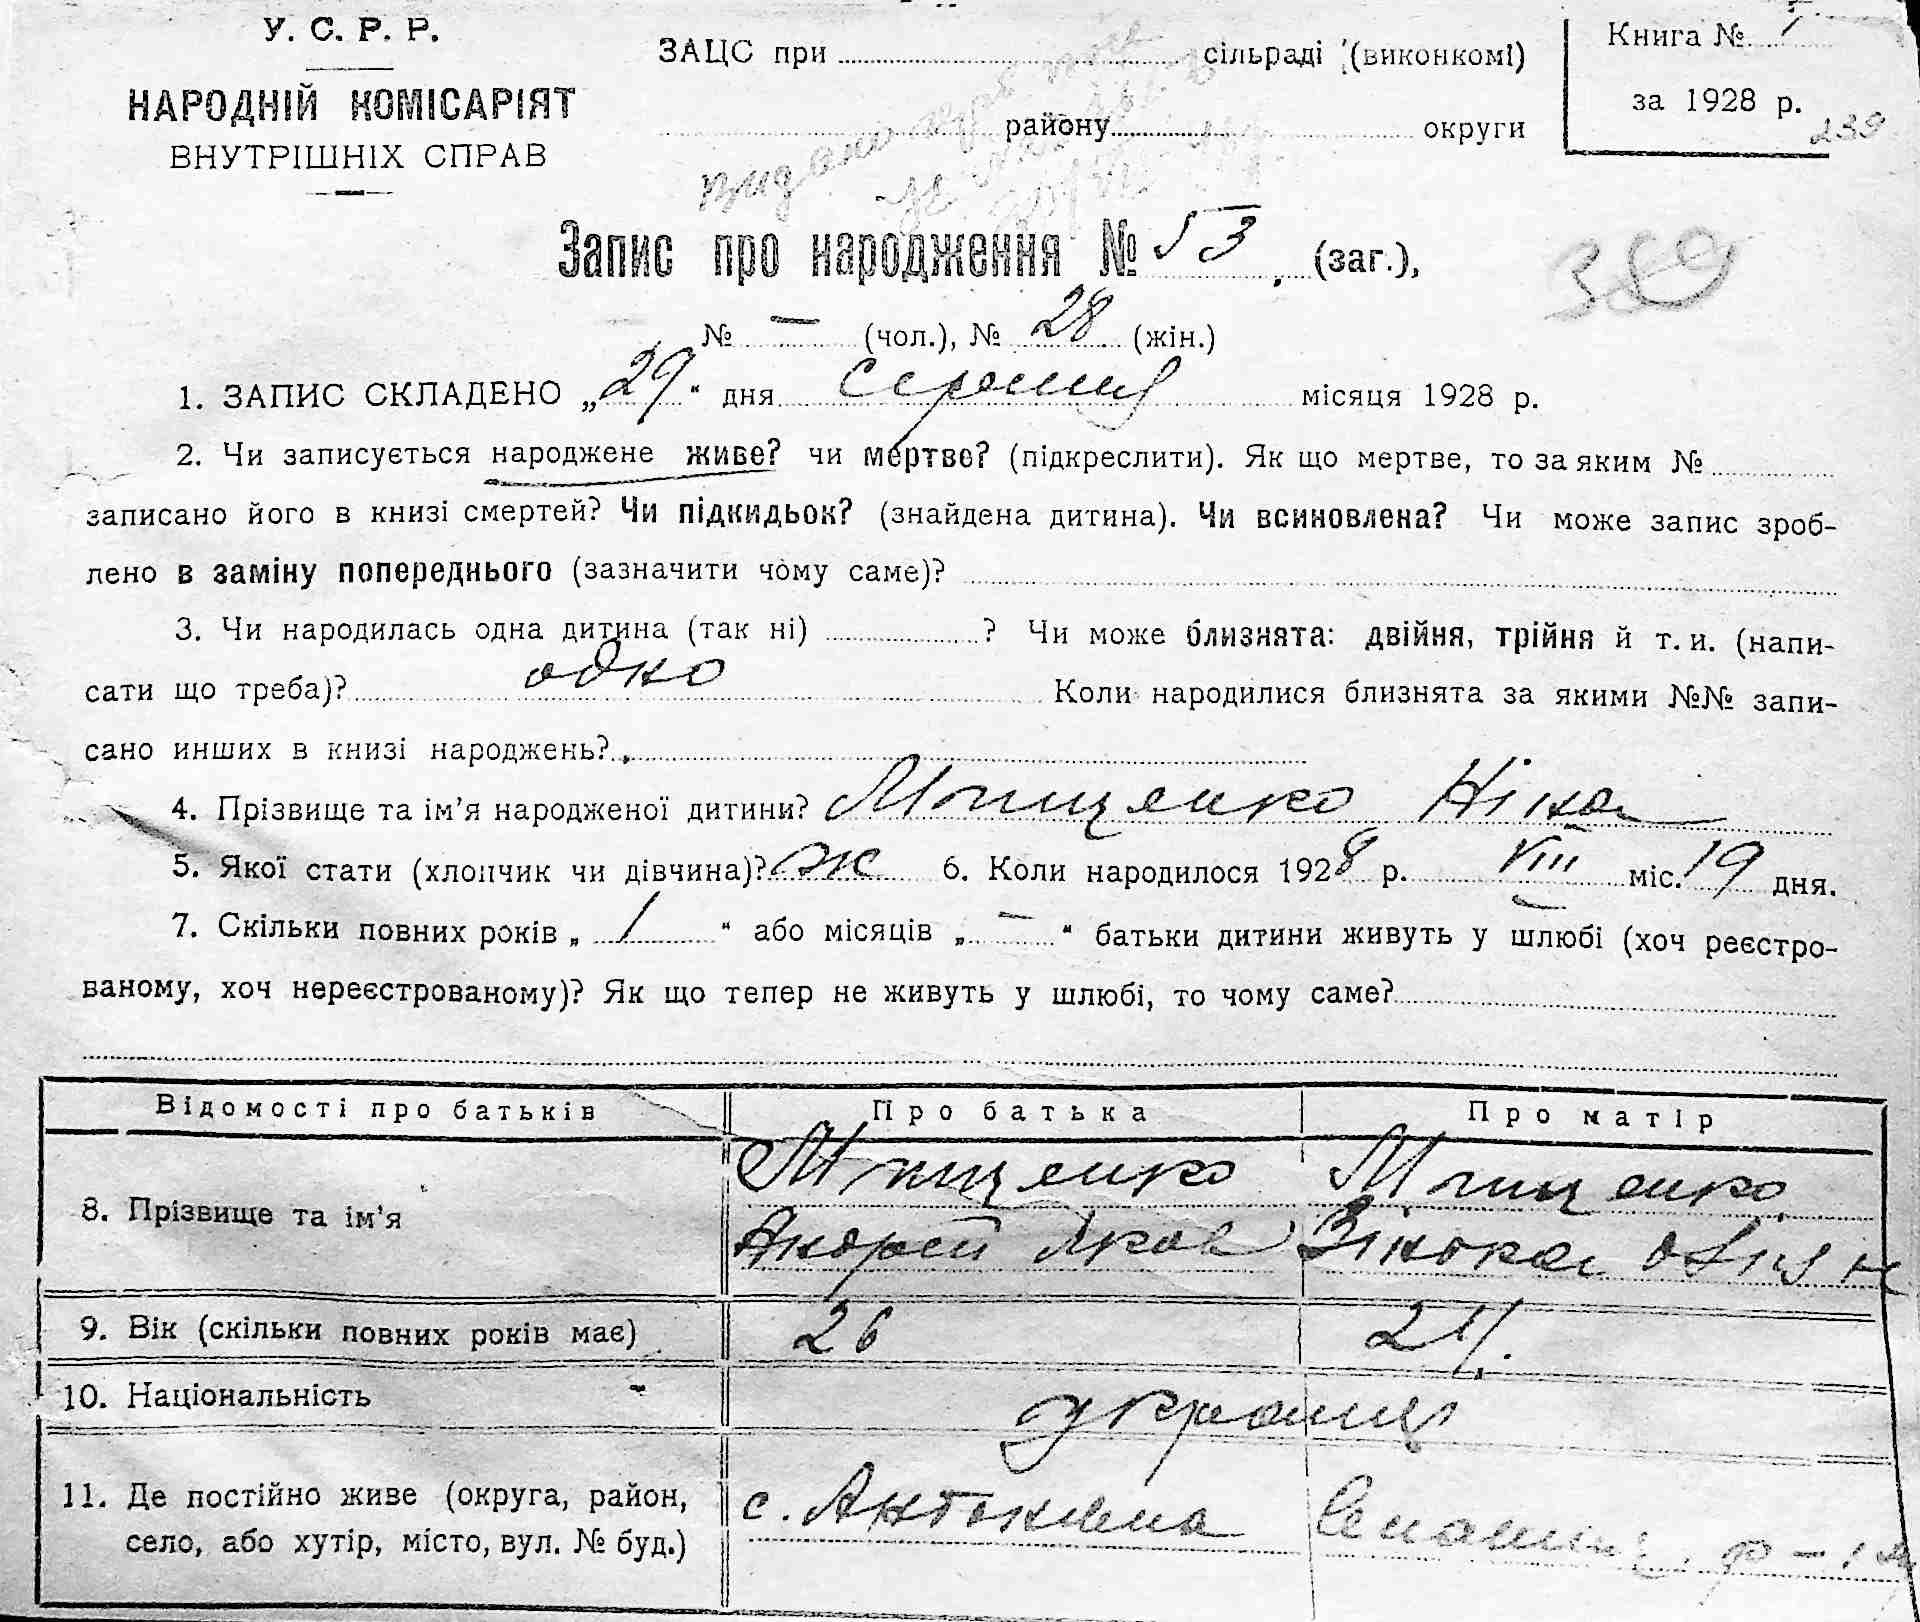 У. С. Р. Р.
НАРОДНІЙ КОМІСАРІЯТ
ВНУТРІШНІХ СПРАВ
ЗАЦС при сільраді (виконкомі)
району округи
Книга №
за 1928 р.
239
Видано
Запис про народження № 53 (заг.),
389
№ — (чол.), № 28 (жін.)
1. ЗАПИС СКЛАДЕНО „29“ дня серпня місяця 1928 р.
2. Чи записується народжене живе? чи мертве? (підкреслити). Як що мертве, то за яким №
записано його в книзі смертей? Чи підкидьок? (знайдена дитина). Чи всиновлена? Чи може запис зроб-
лено в заміну попереднього (зазначити чому саме)?
3. Чи народилась одна дитина (так ні) ? Чи може близнята: двійня, трійня й т. и. (напи-
сати що треба)? одно Коли народилися близнята за якими №№ запи-
сано инших в книзі народжень?
4. Прізвище та ім’я народженої дитини? Мищенко Ніна
5. Якої стати (хлопчик чи дівчина)? ж 6. Коли народилося 1928 р. VIII міс. 19 дня.
7. Скільки повних років „ 1 “ або місяців „ — “ батьки дитини живуть у шлюбі (хоч реєстро-
ваному, хоч нереєстрованому)? Як що тепер не живуть у шлюбі, то чому саме?
Відомості про батьків Про батька Про матір
8. Прізвище та ім’я Мищенко Мищенко
Андрей Яков Зінька
9. Вік (скільки повних років має) 26 24
10. Національність українці
11. Де постійно живе (округа, район, с. Антонівка р-н
село, або хутір, місто, вул. № буд.)